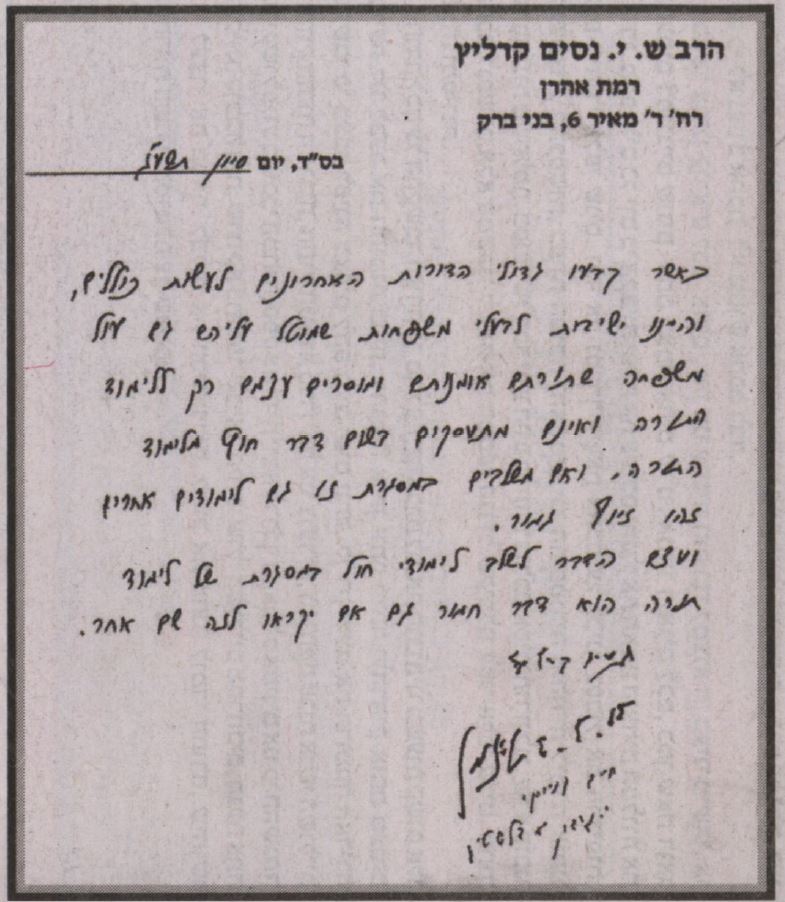 הרב ש. י. נסים קרליץ
רמת אהרן
רח' ר' מאיר 6, בני ברק
בס"ד, יום סיון תשע"ג
כאשר קבעו גדולי הדורות האחרונים לעשות כוללים,
והיינו ישיבות לבעלי משפחות שמוטל עליהם גם עול
משפחה שתורתם אומנותם ומוסרים עצמם רק ללימוד
התורה ואינם מתעסקים בשום דבר חוץ מלימוד
התורה. ואם משלבים במסגרת זו גם לימודים אחרים
זהו זיוף גמור.
ועצם הדבר לשלב לימודי חול במסגרת של לימוד
תורה הוא דבר חמור גם אם יקראו לזה שם אחר.
נסים קרליץ